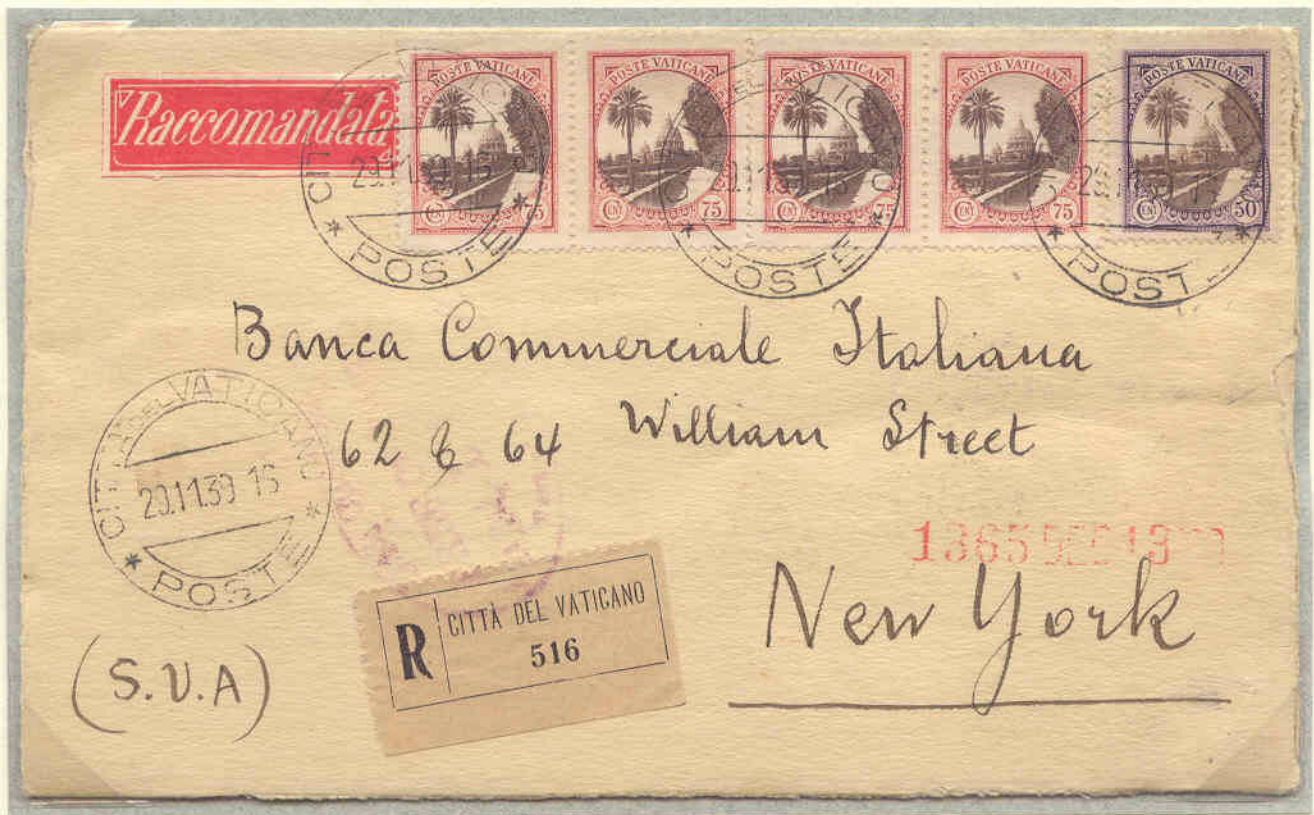 Raccomandata
POSTE VATICANE
CENT 75
POSTE VATICANE
CENT 75
POSTE VATICANE
CENT 75
POSTE VATICANE
CENT 75
POSTE VATICANE
CENT 50
POSTE
POSTE
Banca Commerciale Italiana
62 & 64 William Street
CITTÀ DEL VATICANO
29.11.39 16
POSTE
New York
R
CITTÀ DEL VATICANO
516
(S.U.A)